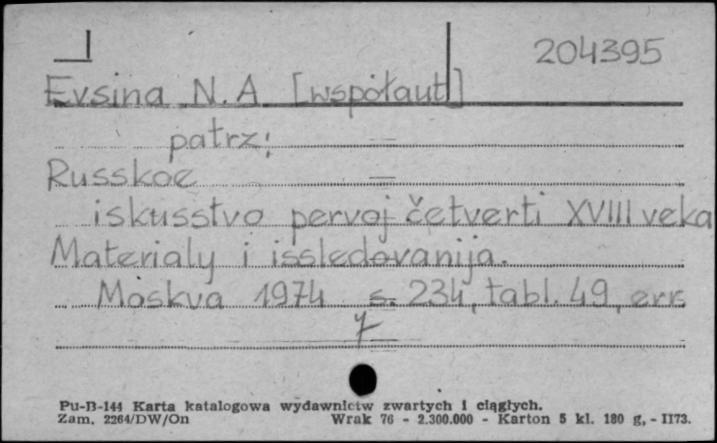 204395
Evsina N. A. [współaut]
patrz:
Russkoe
iskusstvo pervoj četverti XVIII veka
Materialy i issledovanija.
Moskva 1974 s. 234, tabl. 49, err.
Pu-B-144 Karta katalogowa wydawnictw zwartych i ciągłych.
Zam. 2264/DW/On Wrak 76 - 2.300.000 - Karton 5 kl. 180 g, - II73.